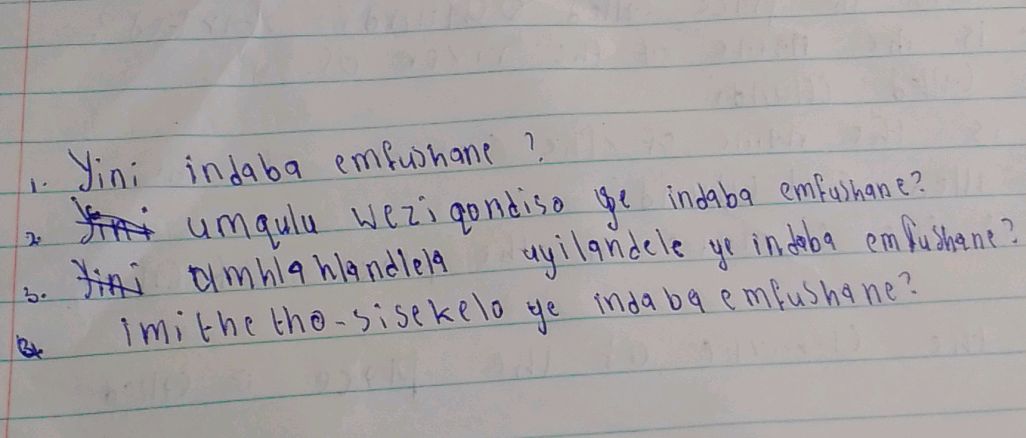 1. Yini indaba emfushane?
2. umqulu weziqondiso ye indaba emfushane?
3. umhlahlandlela uyilandele ye indaba emfushane?
imithetho-sisekelo ye indaba emfushane?